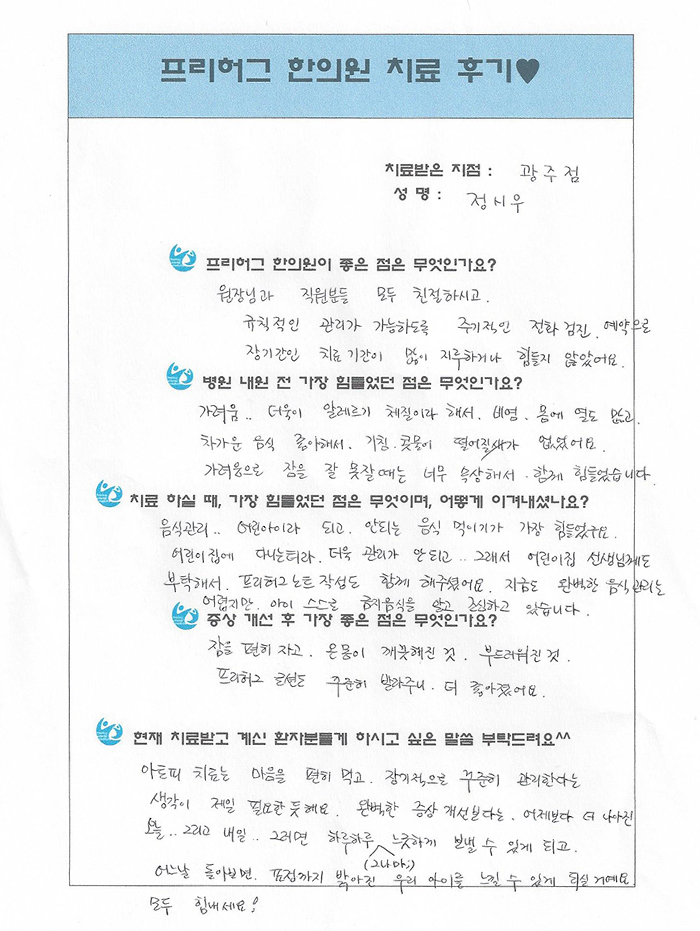 프리허그 한의원 치료 후기♥
치료받은 지점 : 광주점
성 명 : 정시우
프리허그 한의원이 좋은 점은 무엇인가요?
원장님과 직원분들 모두 친절하시고.
규칙적인 관리가 가능하도록 주기적인 전화 검진. 예약으로
장기간인 치료기간이 많이 지루하거나 힘들지 않았어요.
병원 내원 전 가장 힘들었던 점은 무엇인가요?
가려움.. 더욱이 알레르기 체질이라 해서. 비염. 몸에 열도 많고.
차가운 음식 좋아해서. 기침. 콧물이 떨어질새가 없었어요.
가려움으로 잠을 잘 못잘때는 너무 속상해서. 함께 힘들었습니다.
치료 하실 때, 가장 힘들었던 점은 무엇이며, 어떻게 이겨내셨나요?
음식관리.. 어린아이라 되고. 안되는 음식 먹이기가 가장 힘들었구요.
어린이집에 다니는터라. 더욱 관리가 안되고.. 그래서 어린이집 선생님께도
부탁해서. 프리허그노트 작성도 함께 해주셨어요. 지금도 완벽한 음식관리는
어렵지만. 아이 스스로 금지음식을 알고 조심하고 있습니다.
증상 개선 후 가장 좋은 점은 무엇인가요?
잠을 편히 자고. 온몸이 깨끗해진 것. 부드러워진 것.
프리허그 로션도 꾸준히 발라주니. 더 좋아졌어요.
현재 치료받고 계신 환자분들게 하시고 싶은 말씀 부탁드려요^^
아토피 치료는 마음을 편히 먹고. 장기적으로 꾸준히 관리한다는
생각이 제일 필요한듯해요. 완벽한 증상 개선보다는. 어제보다 더 나아진
오늘.. 그리고 내일.. 그러면 하루하루 느긋하게 보낼 수 있게 되고.
(그나마;)
어느날 돌아보면. 표정까지 밝아진 우리 아이를 느낄 수 있게 되실거예요
모두 힘내세요!